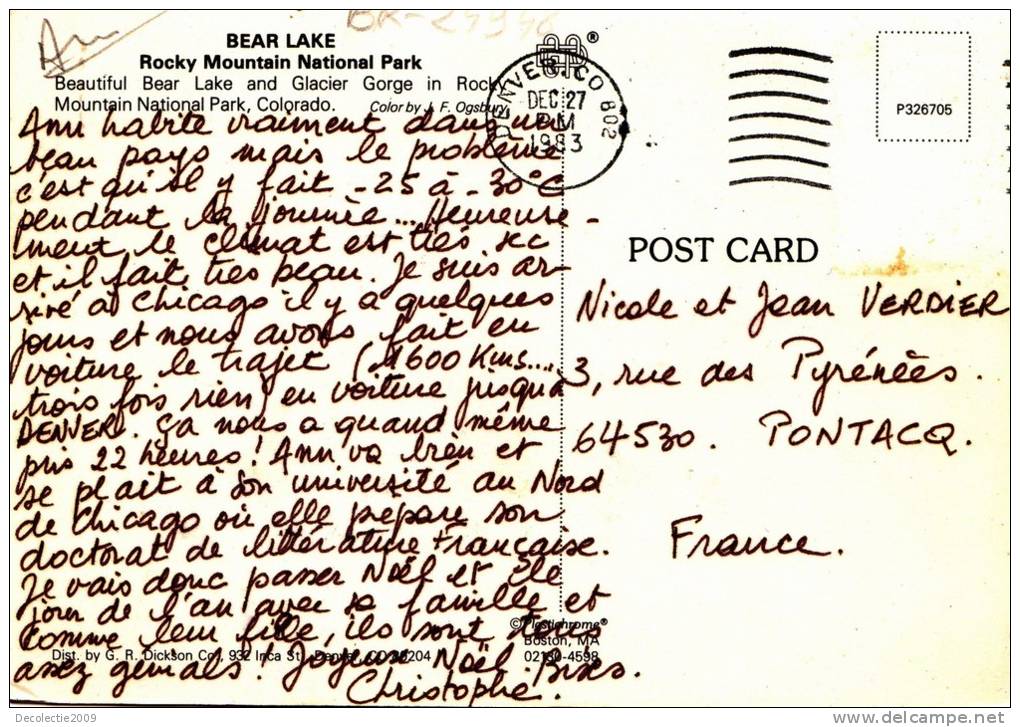 BR-27946
BEAR LAKE
Rocky Mountain National Park
Beautiful Bear Lake and Glacier Gorge in Rocky
Mountain National Park, Colorado. Color by J. F. Ogsbury
DENVER, CO 802
DEC 27
PM
1983
P326705
POST CARD
Ann habite vraiment dans un
beau pays mais le problème
c'est qu'il y fait -25 à -30°C
pendant la journée... Heureuse-
ment le climat est très sec
et il fait très beau. Je suis ar-
rivé à Chicago il y a quelques
jours et nous avons fait en
voiture le trajet (1600 Kms...,
trois fois rien) en voiture jusqu'à
DENVER. ça nous a quand même
pris 22 heures! Ann va bien et
se plait à son université au Nord
de Chicago où elle prépare son
doctorat de littérature Française.
Je vais donc passer Noël et le
jour de l'an avec sa famille et
comme leur fille, ils sont tous
assez géniaux! Joyeux Noël. Bises.
Christophe.
Nicole et Jean VERDIER
3, rue des Pyrénées.
64530. PONTACQ.
France.
© Plastichrome®
Boston, MA
02130-4598
Dist. by G. R. Dickson Co., 932 Inca St., Denver, CO 80204
Decolectie2009
www.delcampe.net